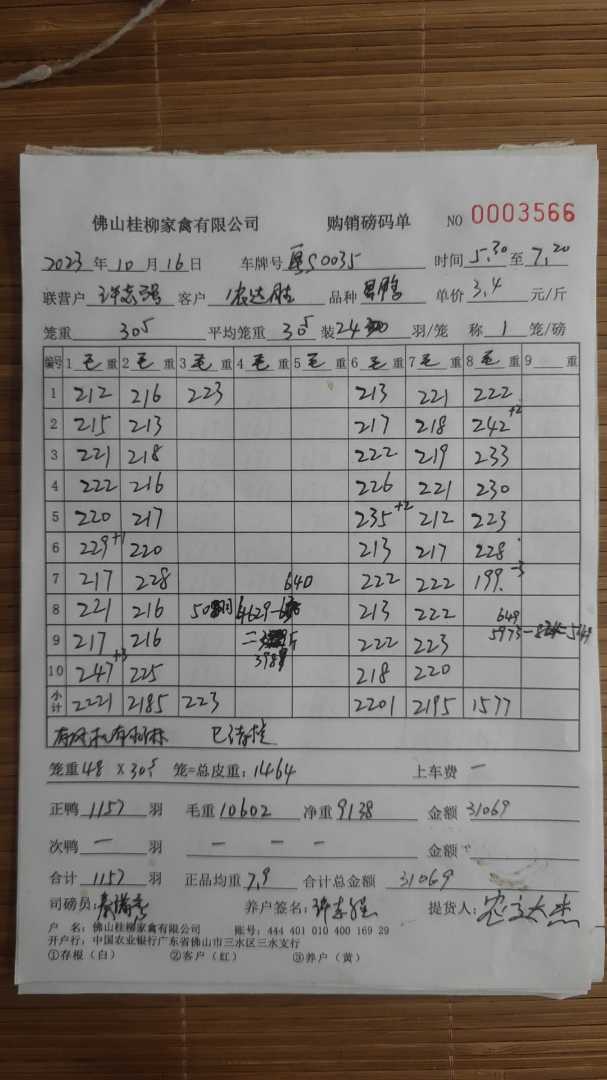 佛山桂柳家禽有限公司 购销磅码单 NO 0003566
2023年10月16日 车牌号 粤S0035 时间5.30至7.20
联营户 客户 品种 单价3.4元/斤
笼重305 平均笼重305 装24 羽/笼 称1笼/磅
编号 1毛重 2毛重 3毛重 4毛重 5毛重 6毛重 7毛重 8毛重 9 重
1 212 216 223 213 221 222
2 215 213 217 218 242+2
3 221 218 222 219 233
4 222 216 226 221 230
5 220 217 235+2 212 223
6 229+1 220 213 217 228
7 217 228 640 222 222 199-3
8 221 216 4629- 213 222 649
9 217 216 222 223 5973-
10 247+3 225 3989 218 220
小计 2221 2185 223 2201 2195 1577
笼重48×305笼=总皮重:1464 上车费 —
正鸭1157羽 毛重10602 净重9138 金额31069
次鸭 — 羽 — — — 金额
合计1157羽 正品均重7.9 合计总金额31069
司磅员: 养户签名: 提货人:
户 名:佛山桂柳家禽有限公司 账号:444 401 010 400 169 29
开户行:中国农业银行广东省佛山市三水区三水支行
①存根(白) ②客户(红) ③养户(黄)